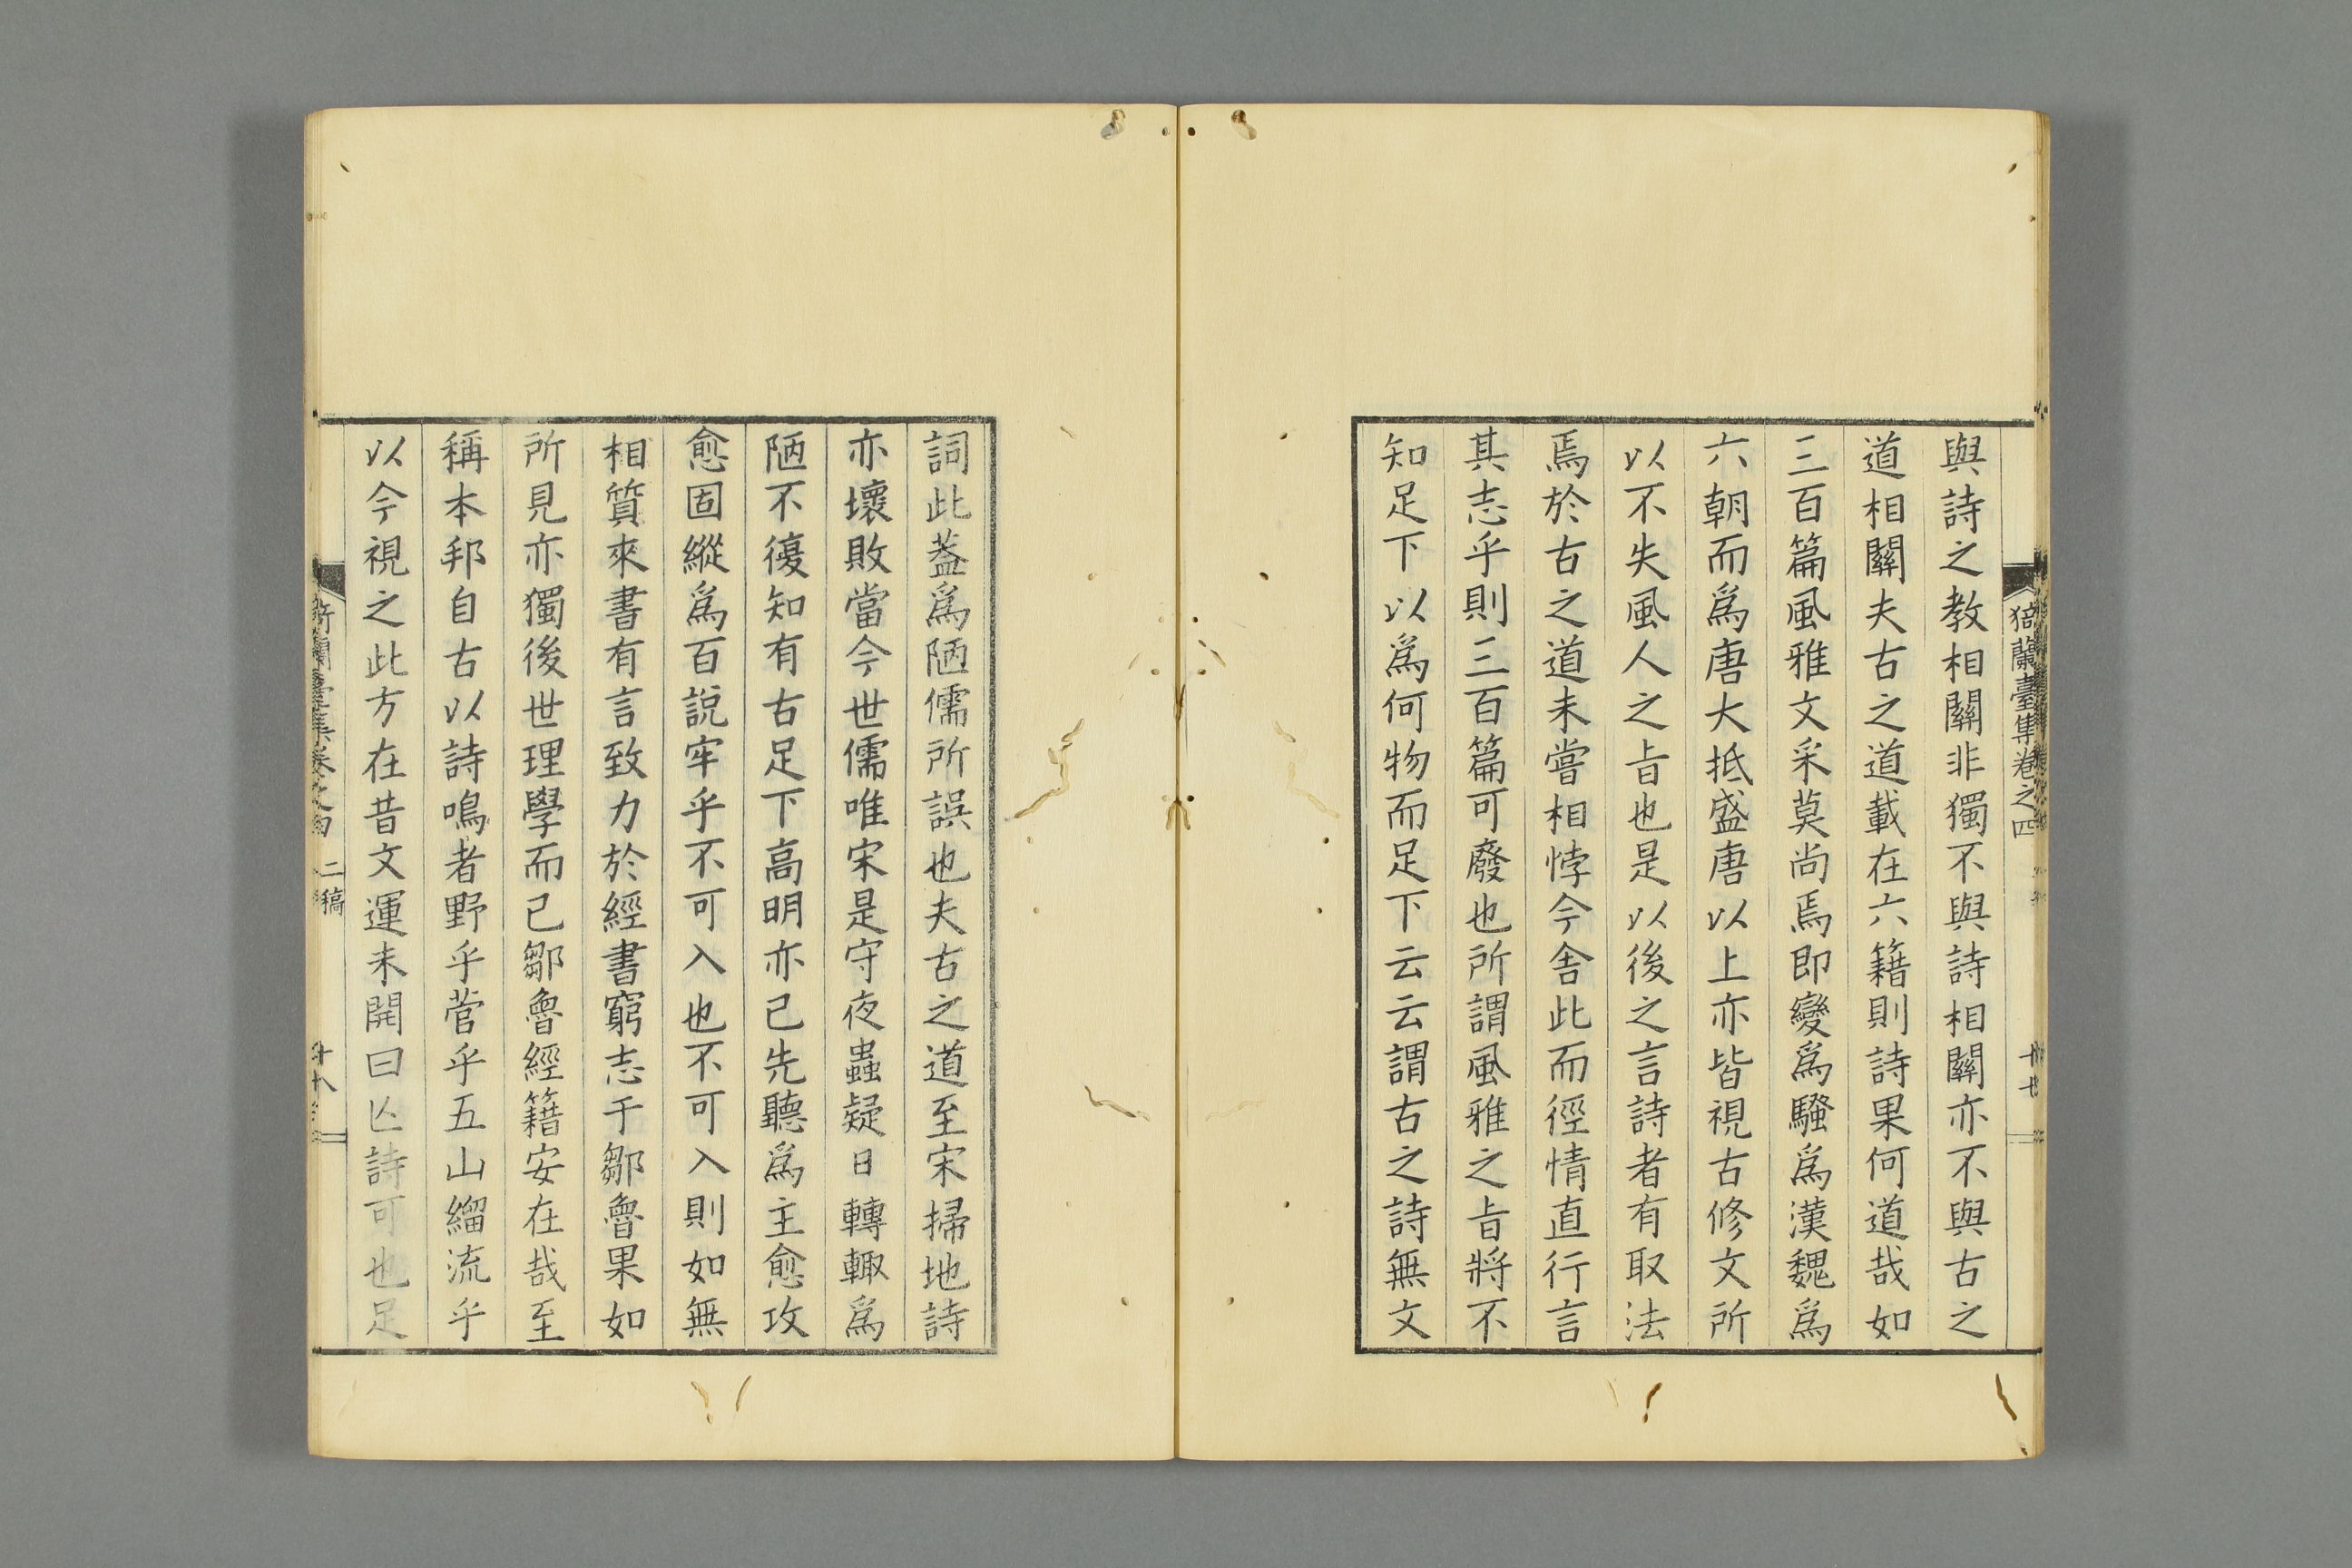 猗蘭臺集卷之四
十七
與詩之教相關非獨不與詩相關亦不與古之
道相關夫古之道載在六籍則詩果何道哉如
三百篇風雅文采莫尚焉即變爲騷爲漢魏爲
六朝而爲唐大抵盛唐以上亦皆視古修文所
以不失風人之旨也是以後之言詩者有取法
焉於古之道未嘗相悖今舍此而徑情直行言
其志乎則三百篇可廢也所謂風雅之旨將不
知足下以爲何物而足下云云謂古之詩無文
詞此葢爲陋儒所誤也夫古之道至宋掃地詩
亦壞敗當今世儒唯宋是守夜蟲疑日轉輙爲
陋不復知有古足下高明亦已先聽爲主愈攻
愈固縱爲百說牢乎不可入也不可入則如無
相質來書有言致力於經書窮志于鄒魯果如
所見亦獨後世理學而已鄒魯經籍安在哉至
稱本邦自古以詩鳴者野乎菅乎五山緇流乎
以今視之此方在昔文運未開曰亾詩可也足
猗蘭臺集卷之四 二稿
十八